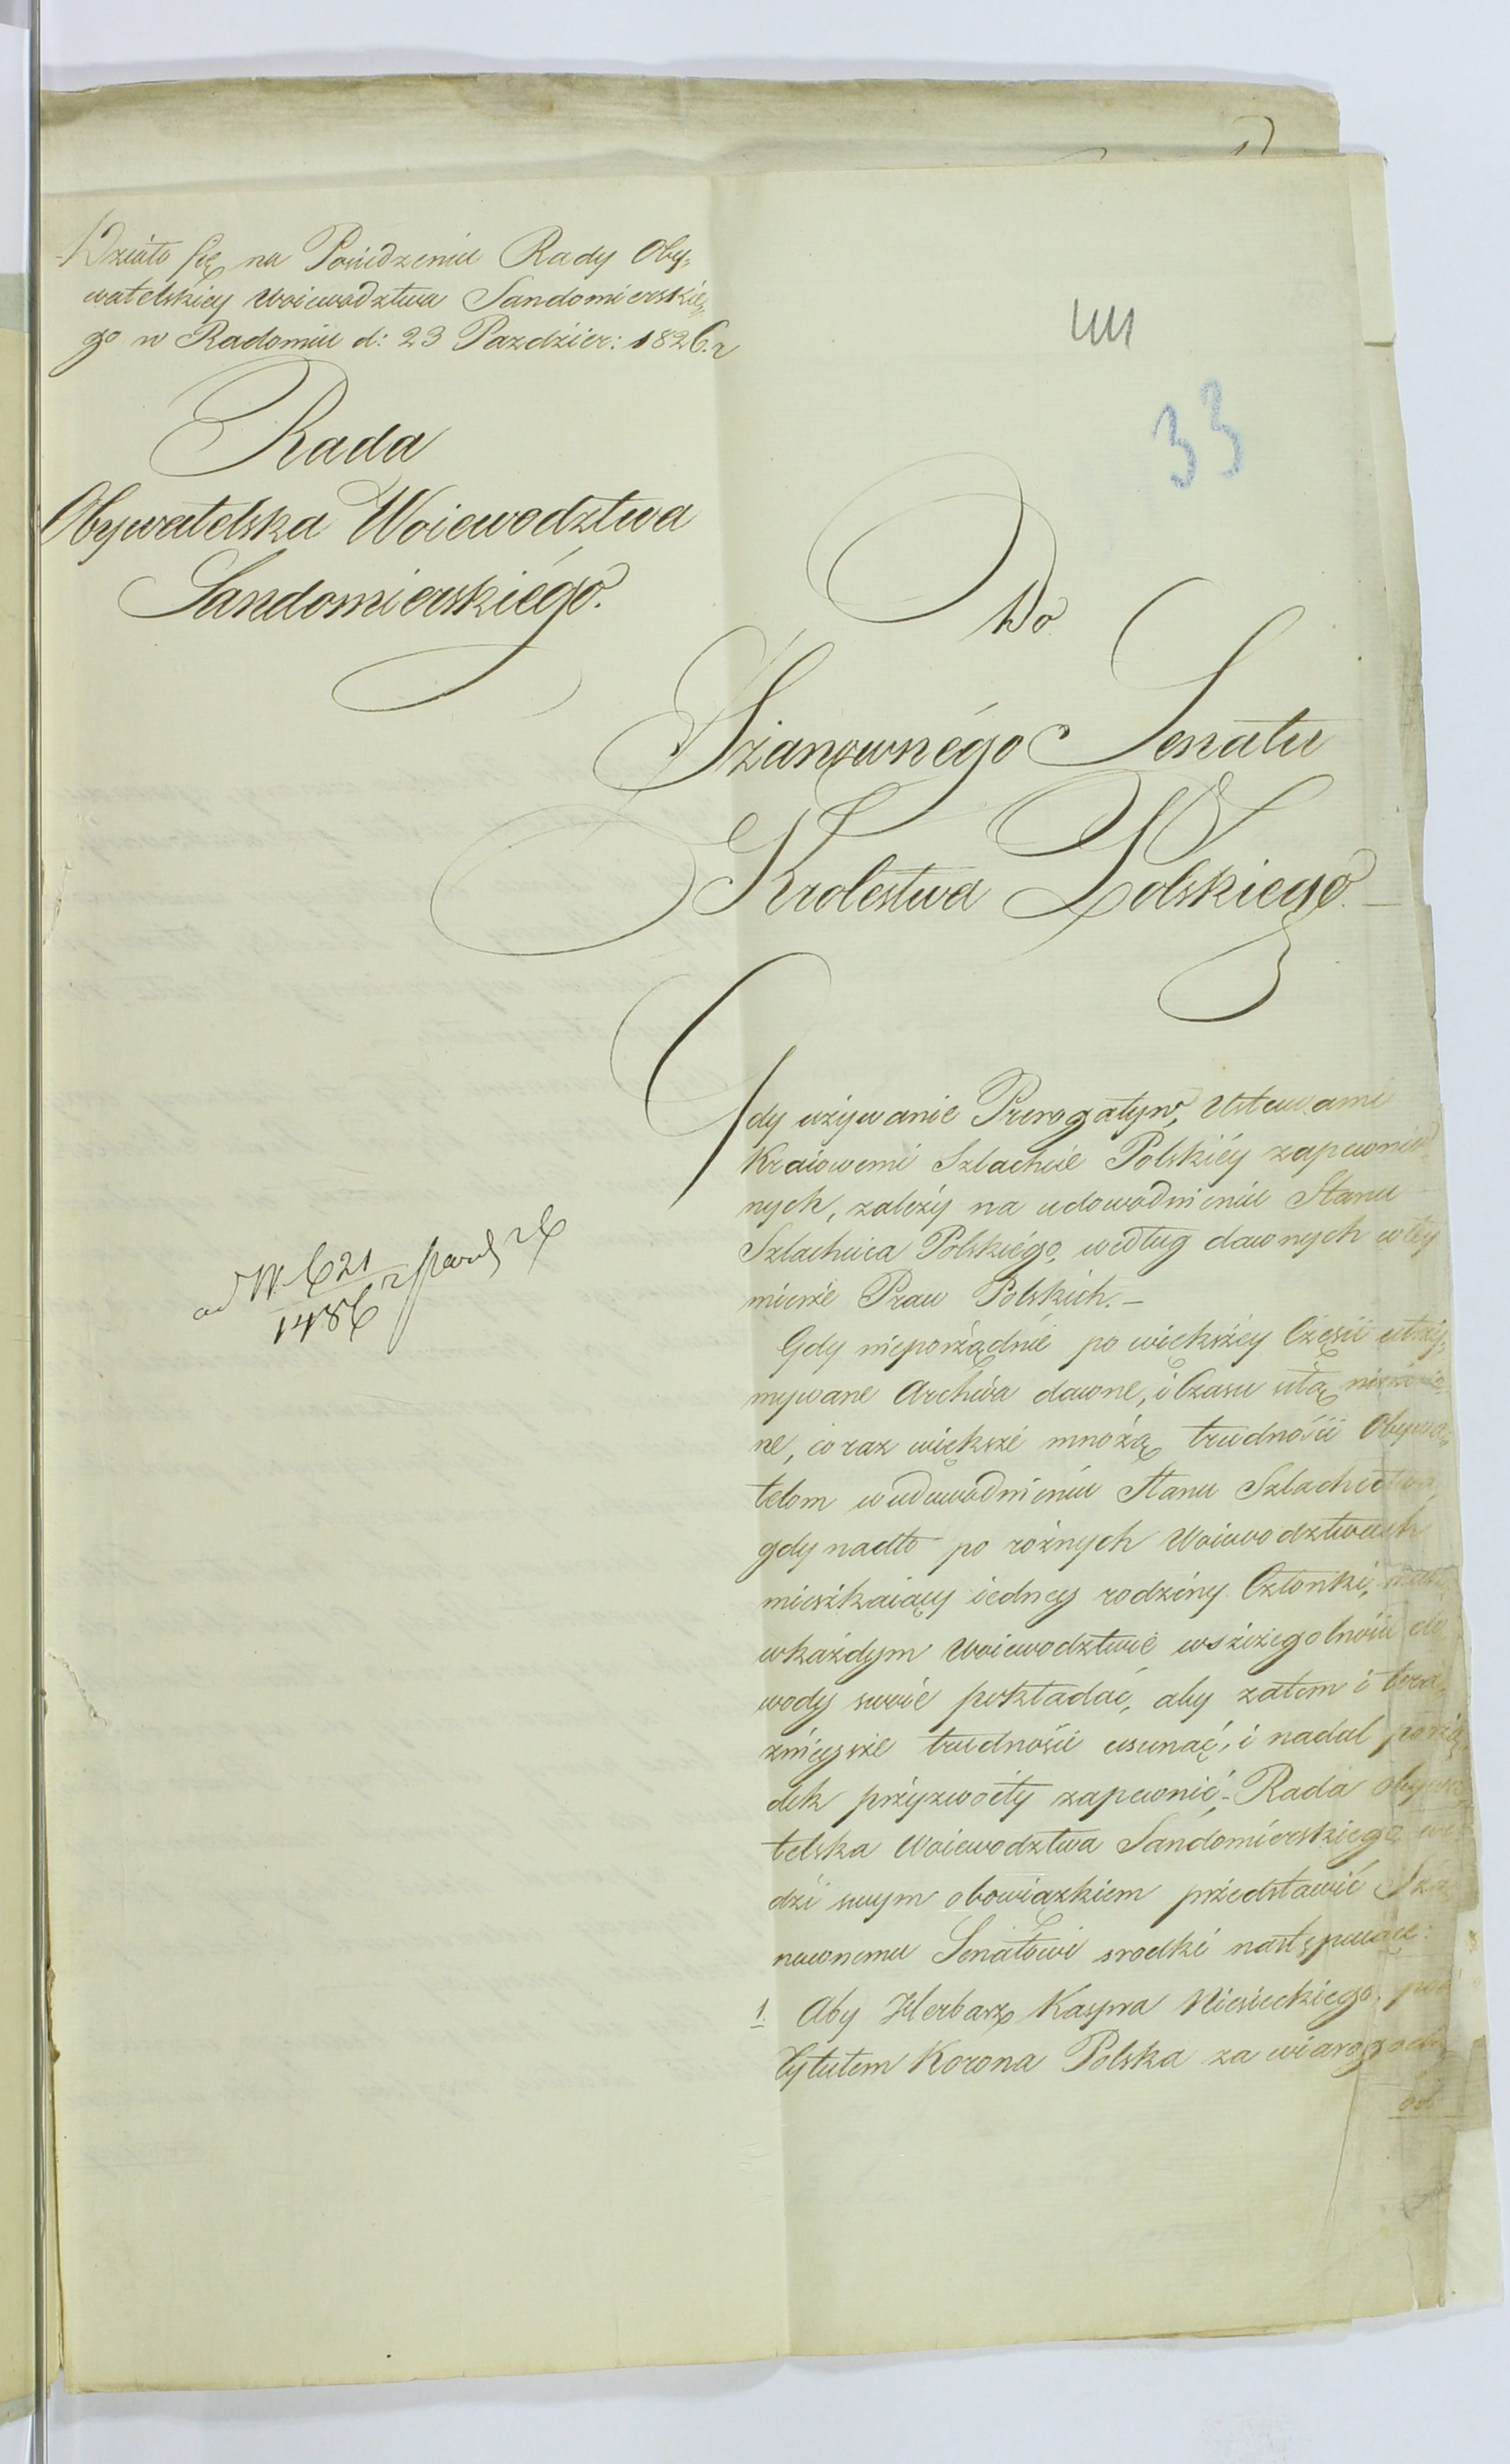 Działo się na Posiedzeniu Rady Oby,
watelskiey Woiewodztwa Sandomierskie,
go w Radomiu d: 23 Pazdzier: 1826. r
Rada
Obywatelska Woiewodztwa
Sandomierskiégo.
33
Do
Szanownégo Senatu
Krolestwa Polskiego.
Gdy używanie Prerogatyw, Ustawami
Kraiowemi Szlachcie Polskiéy zapewnio,
nych, zależy na udowodnieniu Stanu
Szlachcica Polskiégo, według dawnych w tey
mierze Praw Polskich. —
Gdy nieporządnie po większéy Części utrzy,
mywane Archiwa dawne, i Czasu siłą
ne, coraz większe mnożą trudności Obywa,
telom w udowodnieniu Stanu Szlachectwa,
gdy nadto po rożnych Woiewodztwach
mieszkaiący iedney rodziny Członki,
w każdym Woiewodztwie wszczegolności do
wody swoie pokładać, aby zatem i tera,
znieysze trudności usunąć, i nadal porzą,
dek przyzwoity zapewnić, - Rada obywa,
telska Woiewodztwa Sandomierskiego wi,
dzi swym obowiązkiem przedstawić Sza,
nownemu Senatowi srodki następuiące:
1. Aby Herbarz Kaspra Niesieckiego, pod
tytułem Korona Polska za wiarogodny
od N. 621
1486